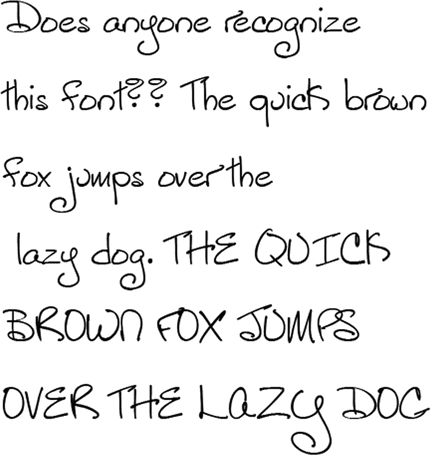 Does anyone recognize
this font?? The quick brown
fox jumps over the
lazy dog. THE QUICK
BROWN FOX JUMPS
OVER THE LAZY DOG